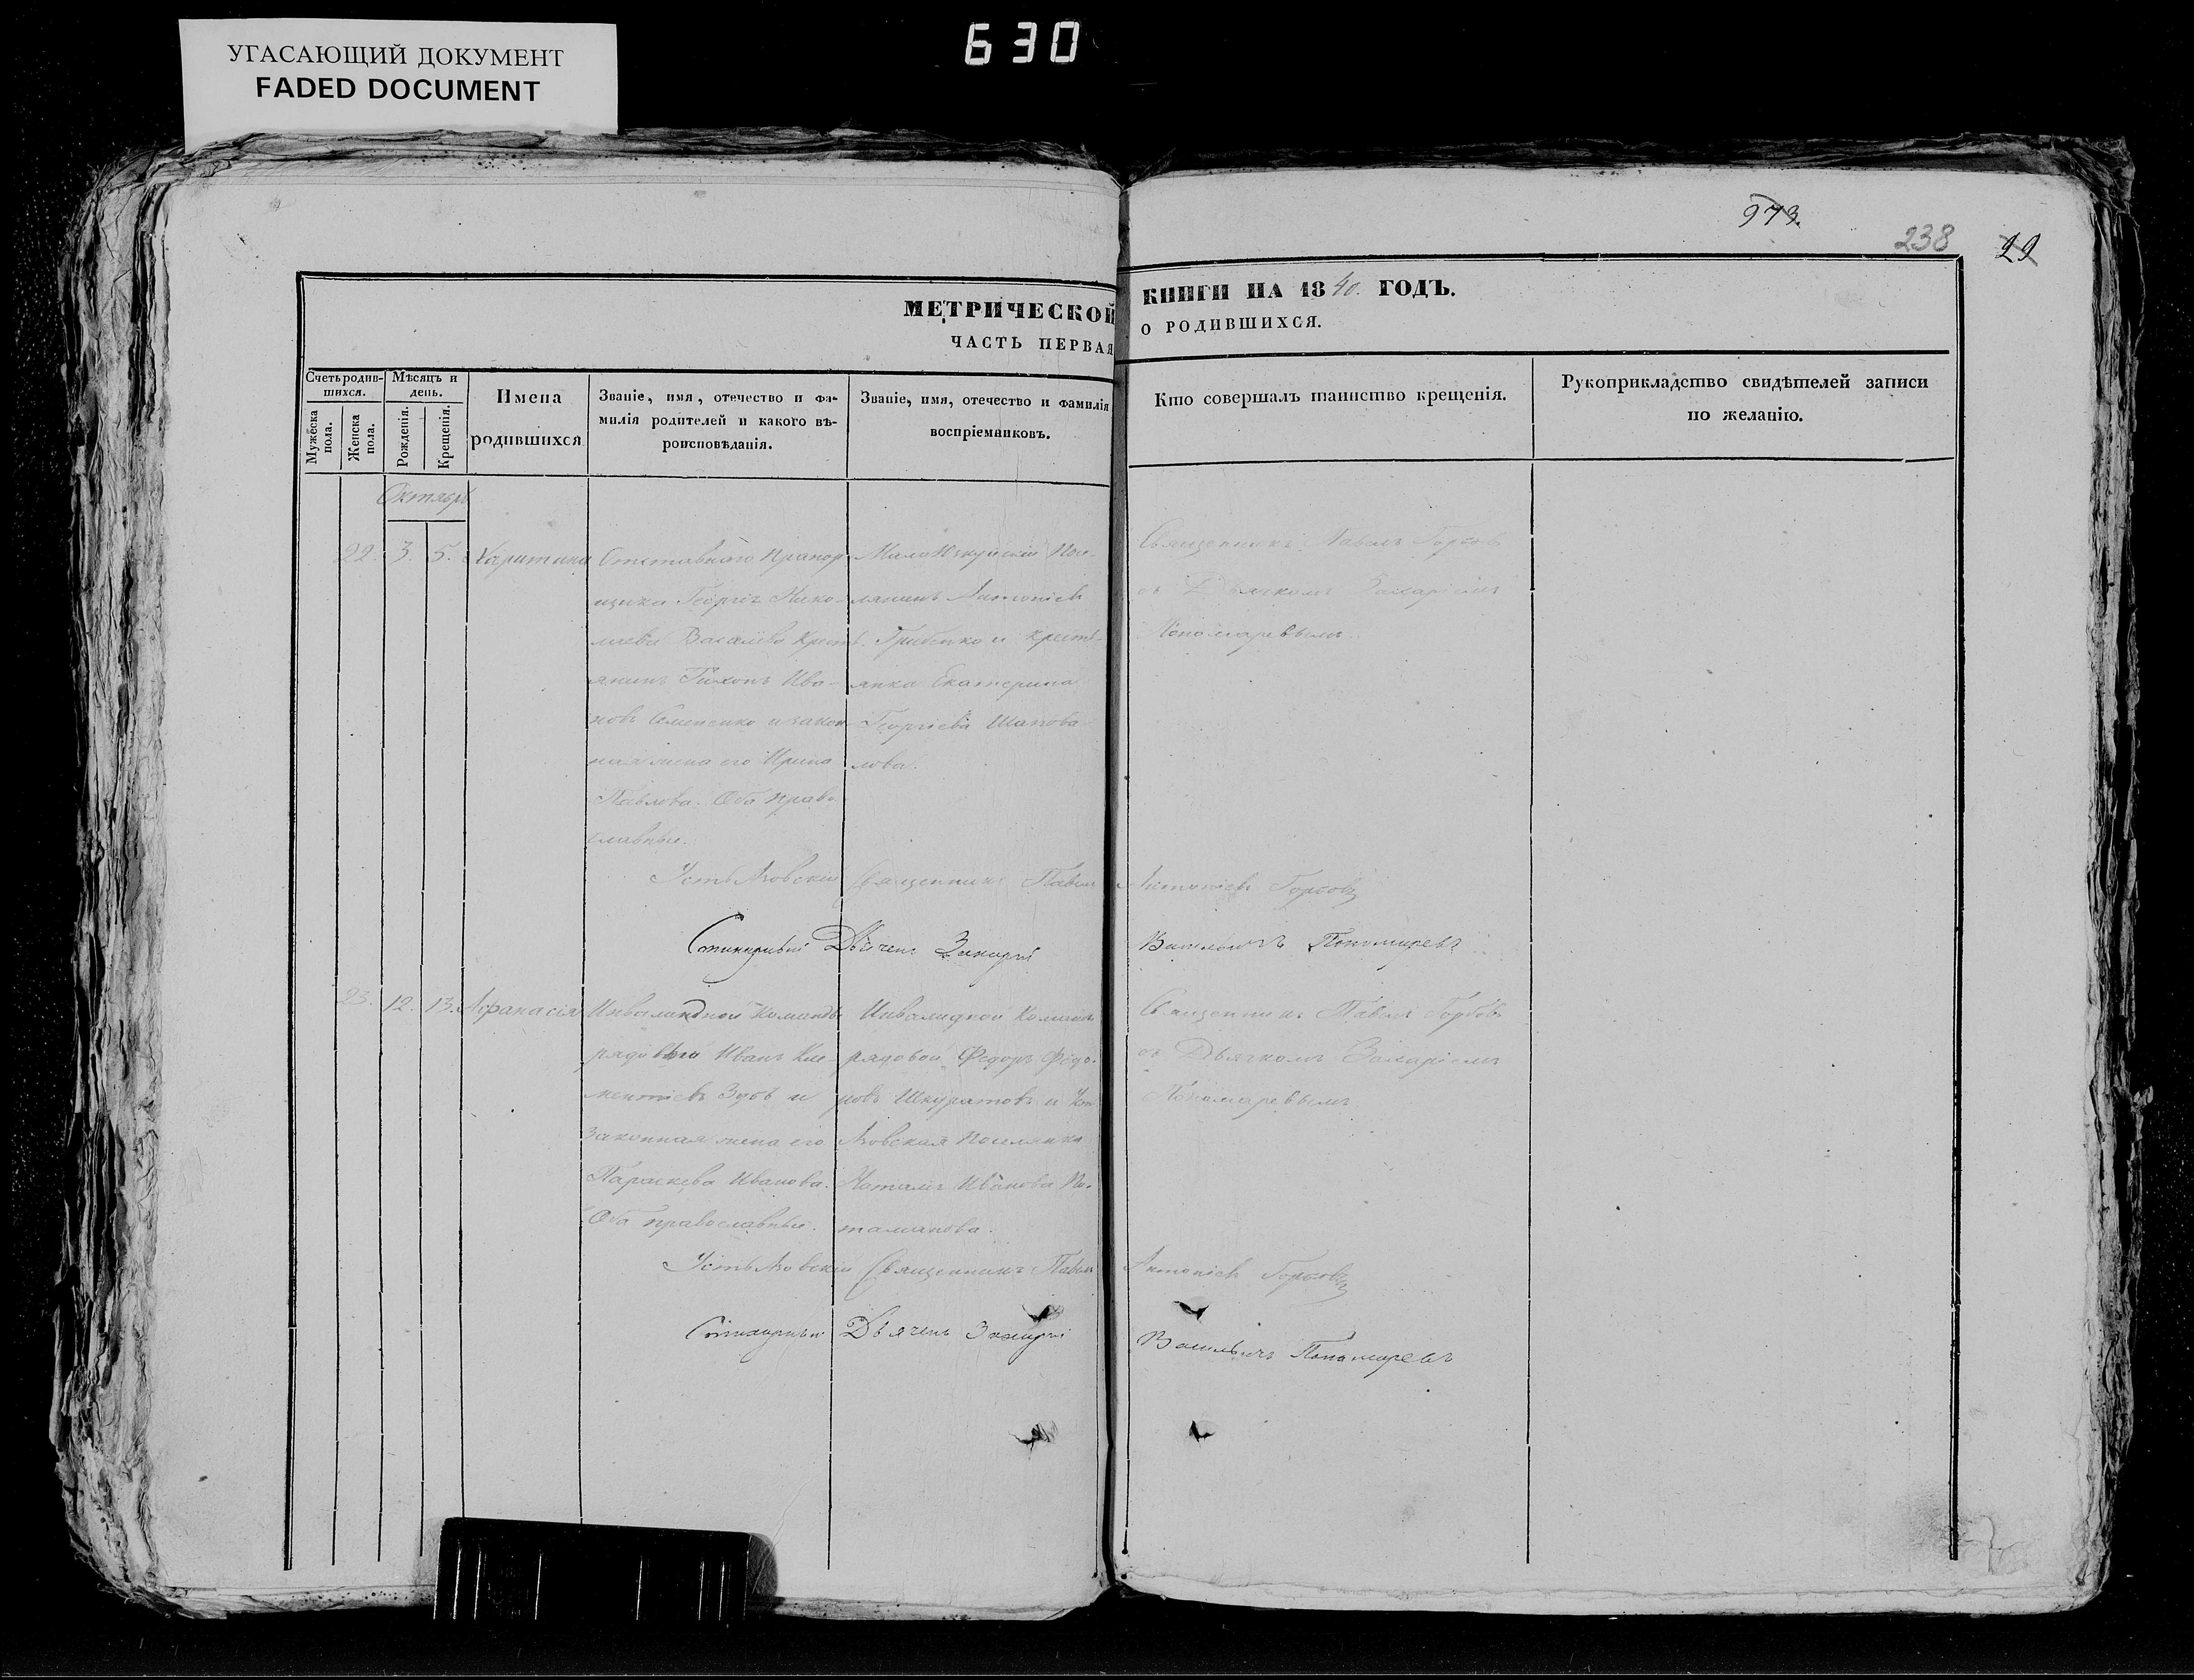 УГАСАЮЩИЙ ДОКУМЕНТ
FADED DOCUMENT
630
973.
238
29
МЕТРИЧЕСКОЙ КНИГИ НА 1840. ГОДЪ.
ЧАСТЬ ПЕРВАЯ О РОДИВШИХСЯ.
Счетъ родив-
шихся.
Мужеска
пола.
Женска
пола.
Мѣсяцъ и
день.
Рожденія.
Крещенія.
Имена
родившихся
Званіе, имя, отечество и фа-
милія родителей и какого вѣ-
роисповѣданія.
Званіе, имя, отечество и фамилія
воспріемниковъ.
Кто совершалъ таинство крещенія.
Рукоприкладство свидѣтелей записи
по желанію.
Октябрь
22. 3. 5. Харитина
Отставнаго Прапор-
щика Георгія Нико-
лаева Васильева Кресть-
янинъ Тихонъ Ива-
новъ Семененко и закон-
ная жена его Ирина
Павлова. Оба Право-
славные.
Посе-
лянинъ Антоній
и кресть-
янка Екатерина
Георгіева Шапова-
лова.
Священникъ Павелъ
съ Дьячкомъ Захаріемъ
Пономаревымъ.
Священникъ Павелъ Антоніевъ
Стихарный Дьячекъ Захарій Васильевъ Пономаревъ
23. 12. 13. Афанасія
Инвалидной Команды
рядовой Иванъ Кле-
ментіевъ и
законная жена его
Параскева Иванова.
Оба православные.
Инвалидной Команды
рядовой Федоръ Федо-
ровъ Шкуратовъ и
Поселянка
Наталія Иванова По-
таманова.
Священникъ Павелъ
съ Дьячкомъ Захаріемъ
Пономаревымъ
Священникъ Павелъ Антоніевъ
Стихарный Дьячекъ Захарій Васильевъ Пономаревъ